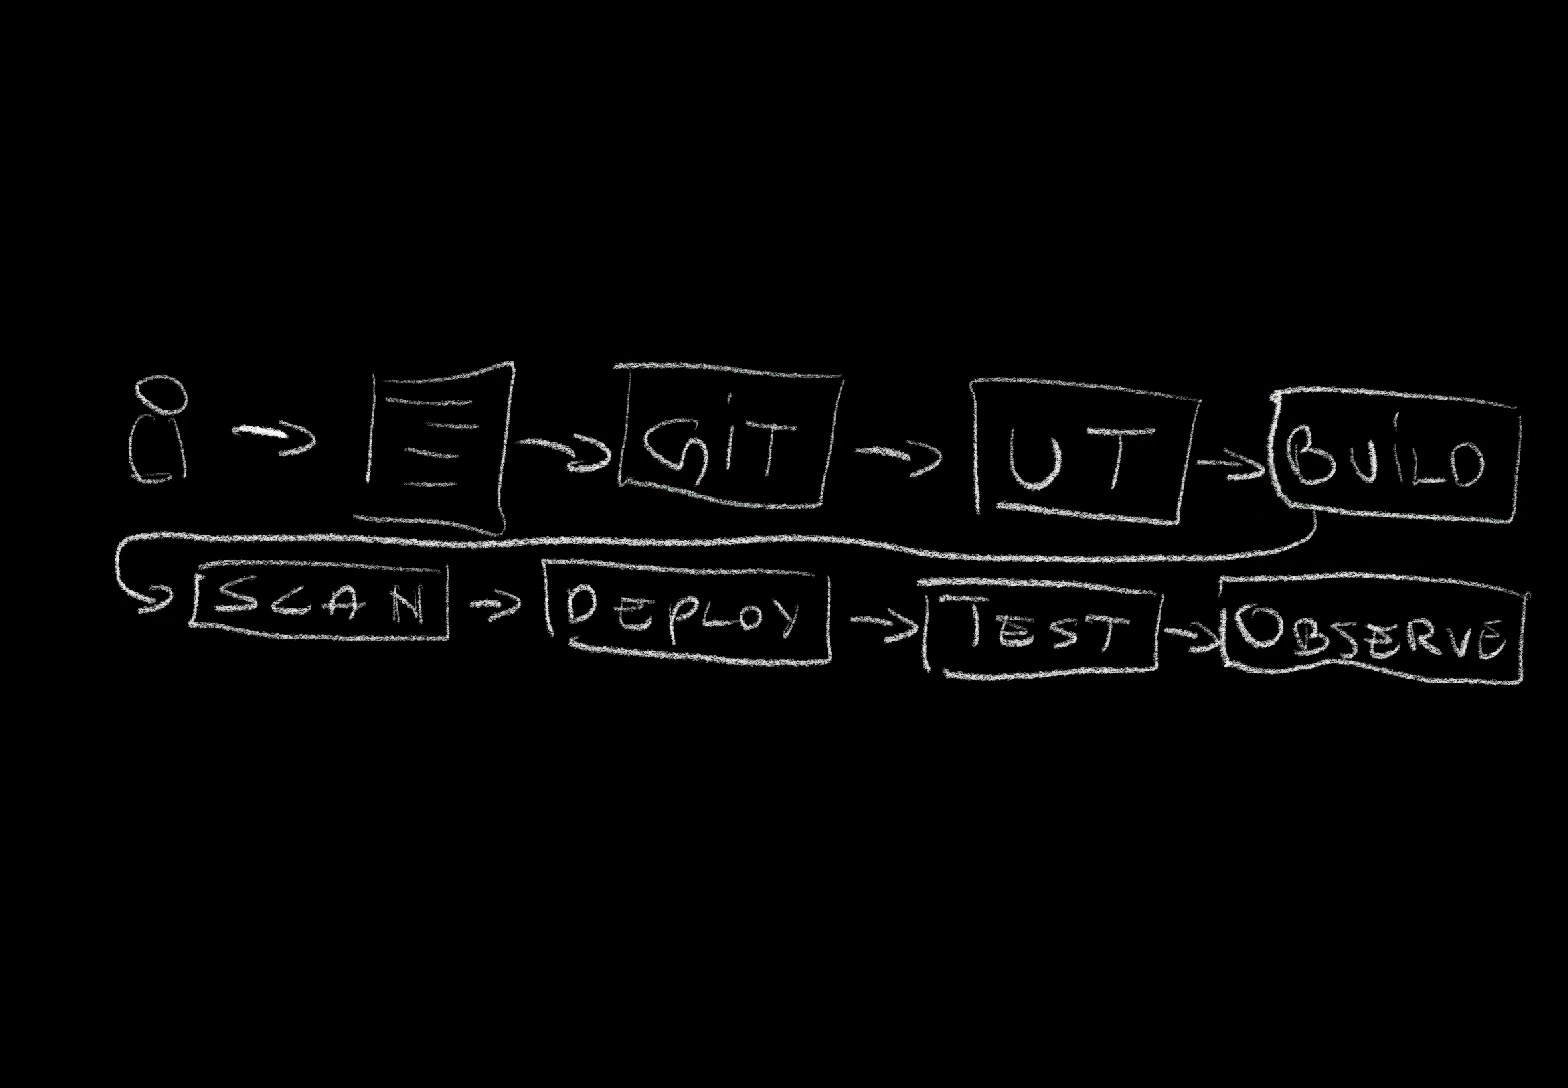 GIT UT BUILD
SCAN DEPLOY TEST OBSERVE